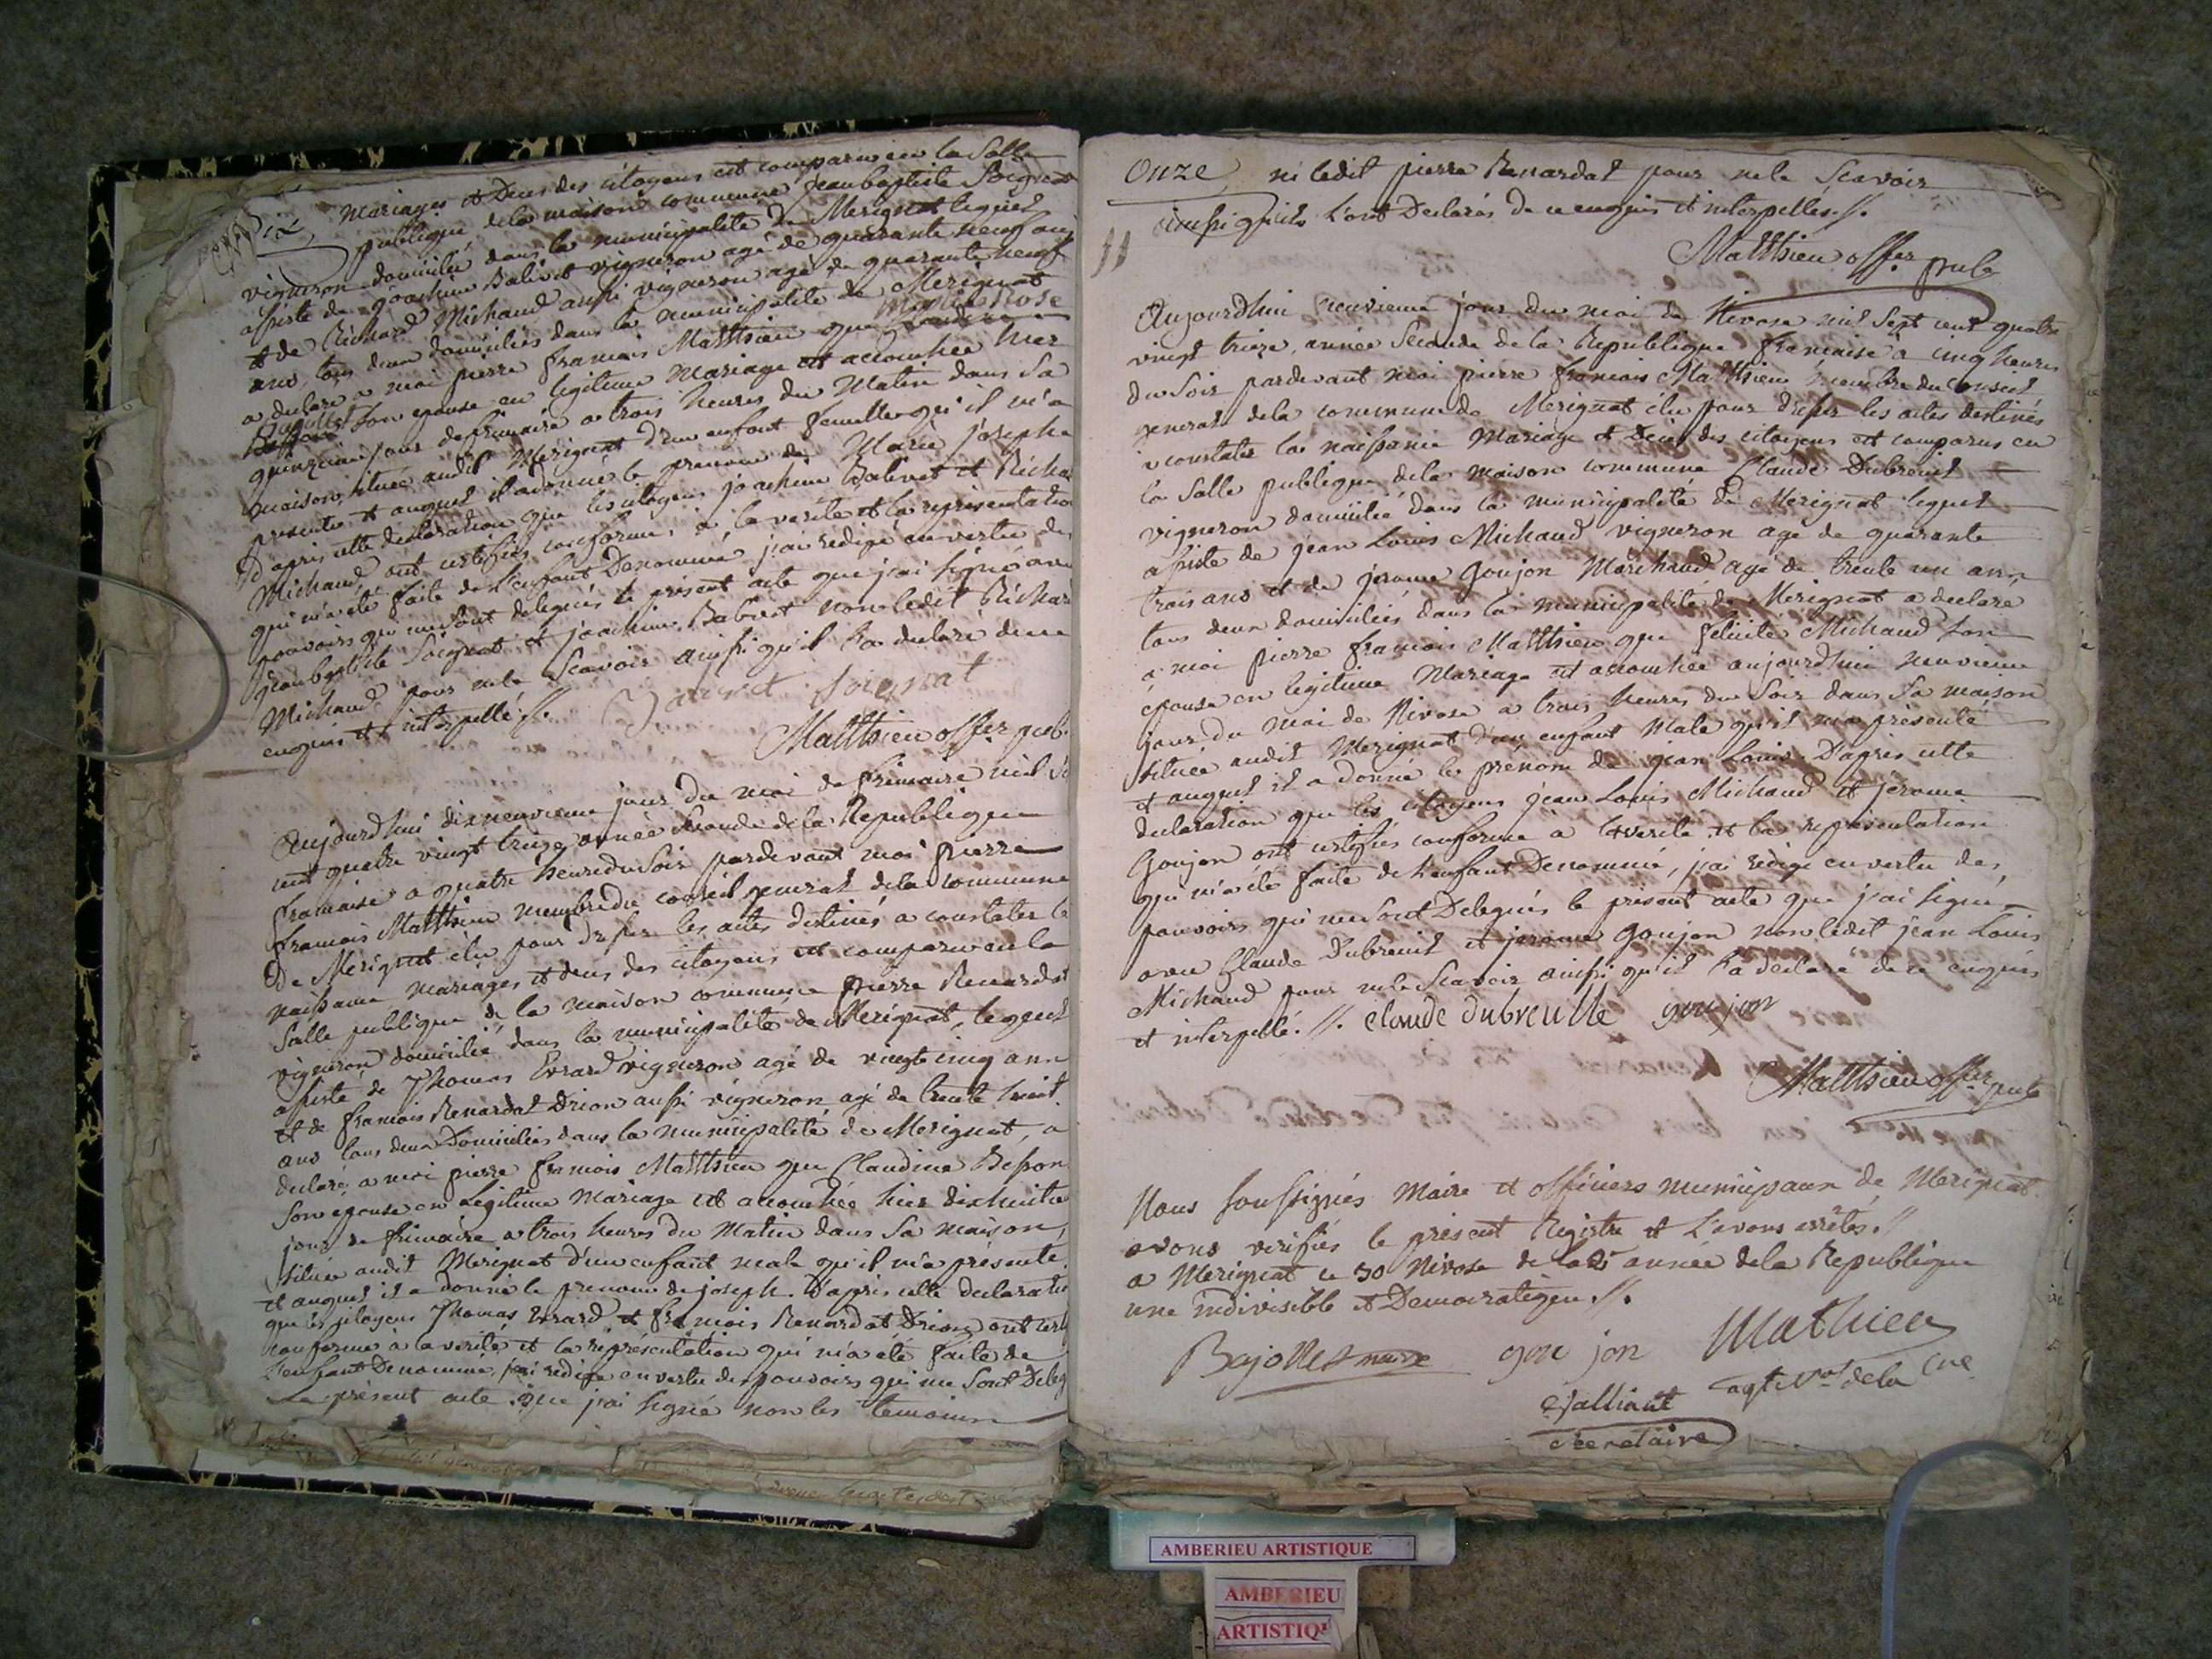 Dix mariages et Deces des citoyens est comparu en la Salle
publique de la maison commune jeanbaptiste Soignat
vigneron domicilié dans la municipalité de Merignat lequel
assisté de joachim Balivet vigneron agé de quarante neuf ans
et de Richard Michaud aussi vigneron agé de quarante neuf
ans, tous deux domiciliés dans la municipalité de Merignat
a declaré a moi pierre francois Matthieu que Marie Rose
son epouse en legitime Mariage est accouchée hier
quinzieme jour de frimaire a trois heures du Matin dans Sa
maison située audit Merignat d'un enfant femelle qu'il m'a
presenté et auquel il a donné le prenom de Marie josephe
D'apres cette declaration que les citoyens joachim Balivet et Richa
Michaud ont certifiés conforme à la verité et la representation
qui m'a été faite de l'enfant Denommé j'ai redigé en vertu des
pouvoirs qui me sont delegués le present acte que j'ai signé avec
jeanbaptiste Soignat et joachim Balivet non ledit Richar
Michaud pour ne le Scavoir ainsi qu'il l'a declaré de ce
enquis et interpellé //.
Balivet Soignat
Matthieu offer pub.
Aujourdhui dixneuvieme jour du moi de frimaire mil se
cent quatre vingt treize, année Seconde de la Republique
francaise a quatre heure du Soir pardevant moi pierre
francois Matthieu membre du conseil general de la commune
De Merignat élu pour dresser les actes destinés a constater la
naissance, mariages et deces des citoyens est comparu en la
Salle publique de la maison commune pierre Renardat
vigneron domicilié dans la municipalité de Merignat, lequel
assisté de Thomas Evrard vigneron agé de vingt cinq ans
et de francois Renardat Drion aussi vigneron agé de trente huit
ans tous deux Domiciliés dans la municipalité de Merignat, a
declaré a moi pierre francois Matthieu que Claudine Besson
Son epouse en Legitime Mariage est accouchée hier dixhuitie
jour de frimaire a trois heures du Matin dans Sa maison,
située audit Merignat d'un enfant male qu'il m'a presenté
et auquel il a donné le prenom de joseph. D'apres cette declaratio
que les citoyens Thomas Evrard et francois Renardat Drion ont certi
conforme à la verité et la représentation qui m'a été faite de
l'enfant Denommé, j'ai redigé en vertu des pouvoirs qui me sont Deleg
Le présent acte que j'ai signé non les temoins
Onze ni ledit pierre Renardat pour ne le Scavoir
11 ainsi qu'ils L'ont Declarés de ce enquis et interpellés //.
Matthieu offer pub
Aujourdhui neuvieme jour du moi de Nivose mil Sept cent quatre
vingt treize, année Seconde de la Republique francaise à cinq heures
du Soir pardevant moi pierre francois Matthieu membre du conseil
general de la commune de Merignat élu pour dresser les actes destinés
a constater la naissance Mariage et Deces des citoyens est comparus en
la Salle publique de la maison commune Claude Dubreuil
vigneron domicilié dans la municipalité de Merignat lequel
assisté de jean Louis Michaud vigneron agé de quarante
trois ans et de jerome Goujon Marchand agé de trente un ans
tous deux domiciliés dans la municipalité de Merignat a declaré
a moi pierre francois Matthieu que felicité Michaud son
épouse en legitime Mariage est accouchée aujourdhui neuvieme
jour du moi de Nivose a trois heures du Soir dans Sa maison
située audit Merignat d'un enfant Male qu'il m'a présenté
et auquel il a donné le prénom de jean Louis. D'apres cette
declaration que les citoyens jean Louis Michaud et jerome
Goujon ont certifiés conforme à la verité et la representation
qui m'a été faite de l'enfant Denommé, j'ai redigé en vertu des
pouvoirs qui me sont Delegués le present acte que j'ai signé
avec Claude Dubreuil et jerome Goujon non ledit jean Louis
Michaud pour ne le Scavoir ainsi qu'il l'a declaré de ce enquis
et interpellé. //. claude dubreuille goujon
Matthieu offer pub
Nous soussignés Maire et officiers municipaux de Merignat
avons verifiés le présent Registre et L'avons arrêtés. //
a Merignat ce 30 Nivose de la 2e année de la Republique
une indivisible et Democratique. //.
Bajollet maire goujon Mathieu
agt nal de la cne
Valliant
Secretaire
AMBERIEU ARTISTIQUE
AMBERIEU
ARTISTIQU